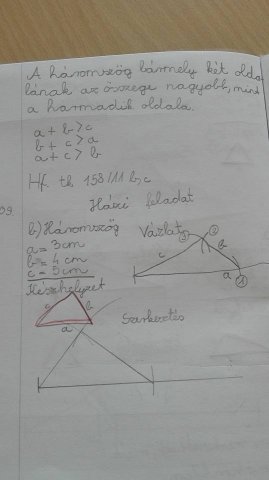 A háromszög bármely két olda
lának az összege nagyobb, mint
a harmadik oldala.
a + b > c
b + c > a
a + c > b
Hf. tk 158/11 b, c
Házi feladat
09.
b.) Háromszög
Vázlat
a = 3cm
b = 4 cm
c = 5cm
c
b
a
c
b
a
Szerkesztés